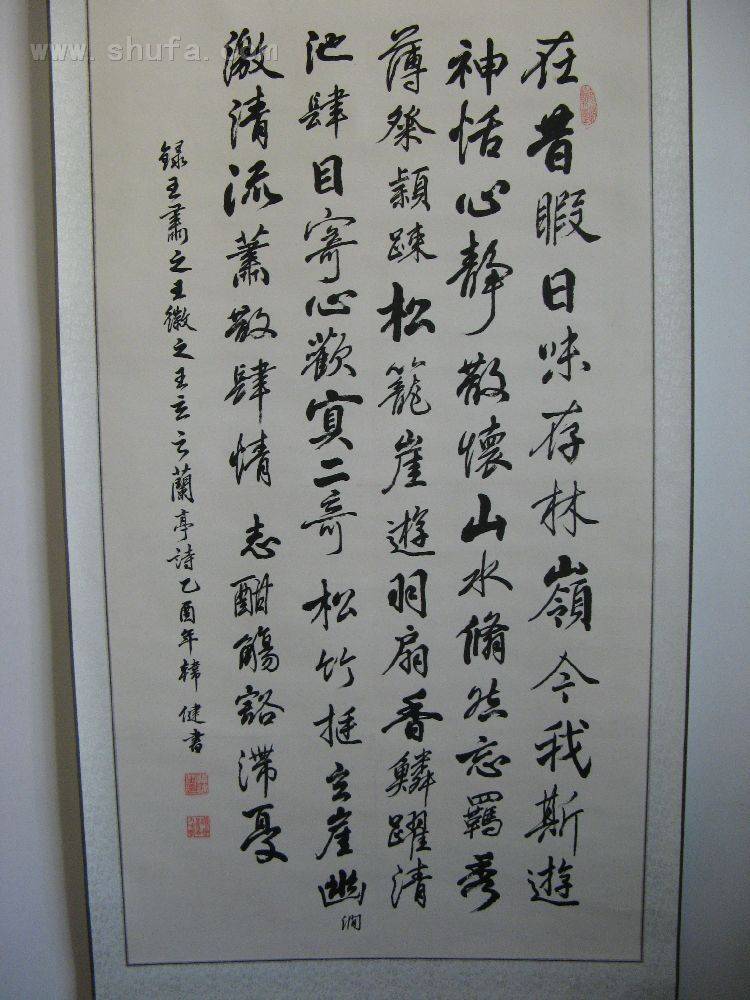 www.shufa.com
在昔暇日味存林嶺今我斯遊
神恬心靜散懷山水脩然忘羈秀
薄粲穎踈松籠崖遊羽扇香鱗躍清
池肆目寄心歡冥二奇松竹挺立崖幽澗
激清流蕭散肆情志酣觴豁滯憂
録王肅之王徽之王玄之蘭亭詩乙酉年韓健書